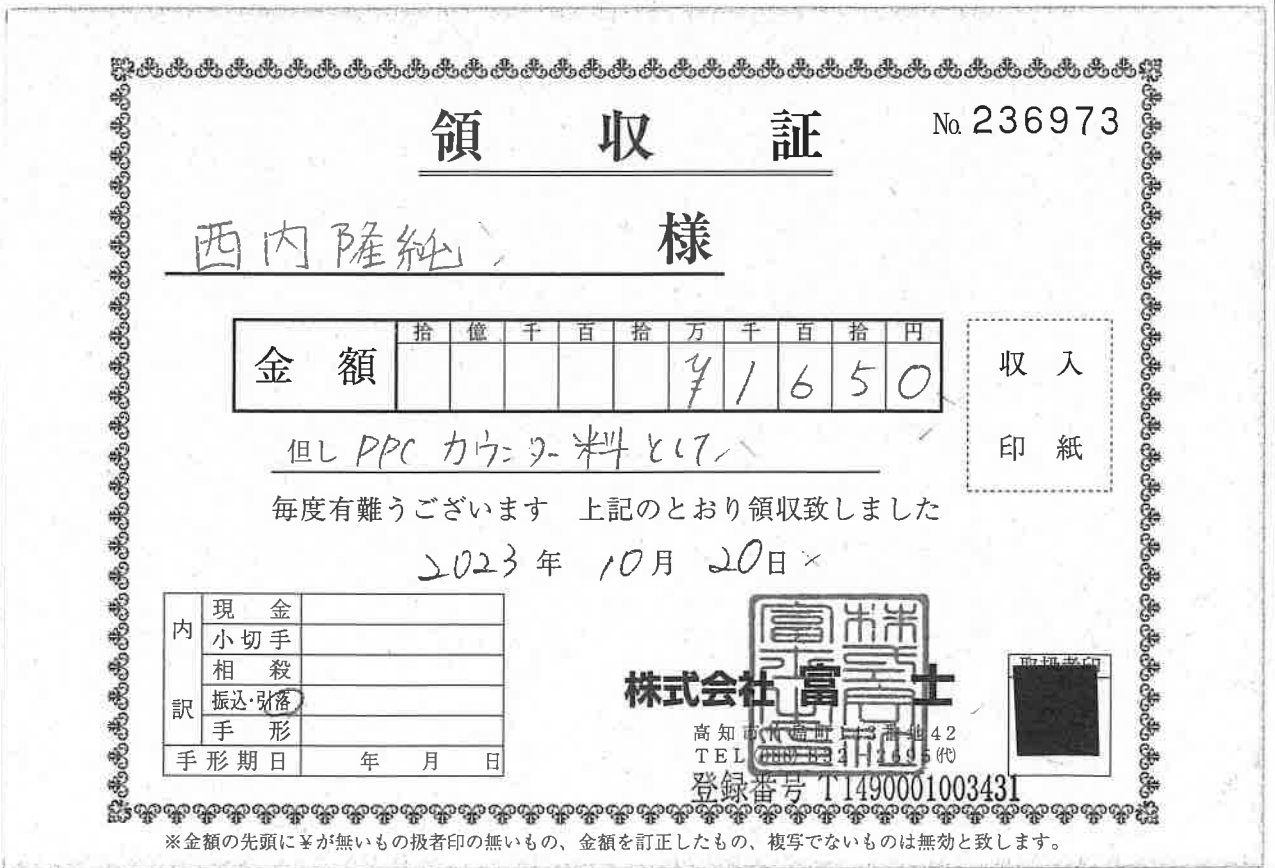 領収証
No. 236973
西内隆純 様
金額 拾 億 千 百 拾 万 千 百 拾 円
¥1650
収入
印紙
但し PPC カウンター料として
毎度有難うございます 上記のとおり領収致しました
2023年 10月 20日
内訳
現金
小切手
相殺
振込・引落
手形
手形期日 年 月 日
株式会社 富士
取扱者印
高知市 町113番地42
TEL (088) 832-2695(代)
登録番号 T1490001003431
※金額の先頭に¥が無いもの扱者印の無いもの、金額を訂正したもの、複写でないものは無効と致します。